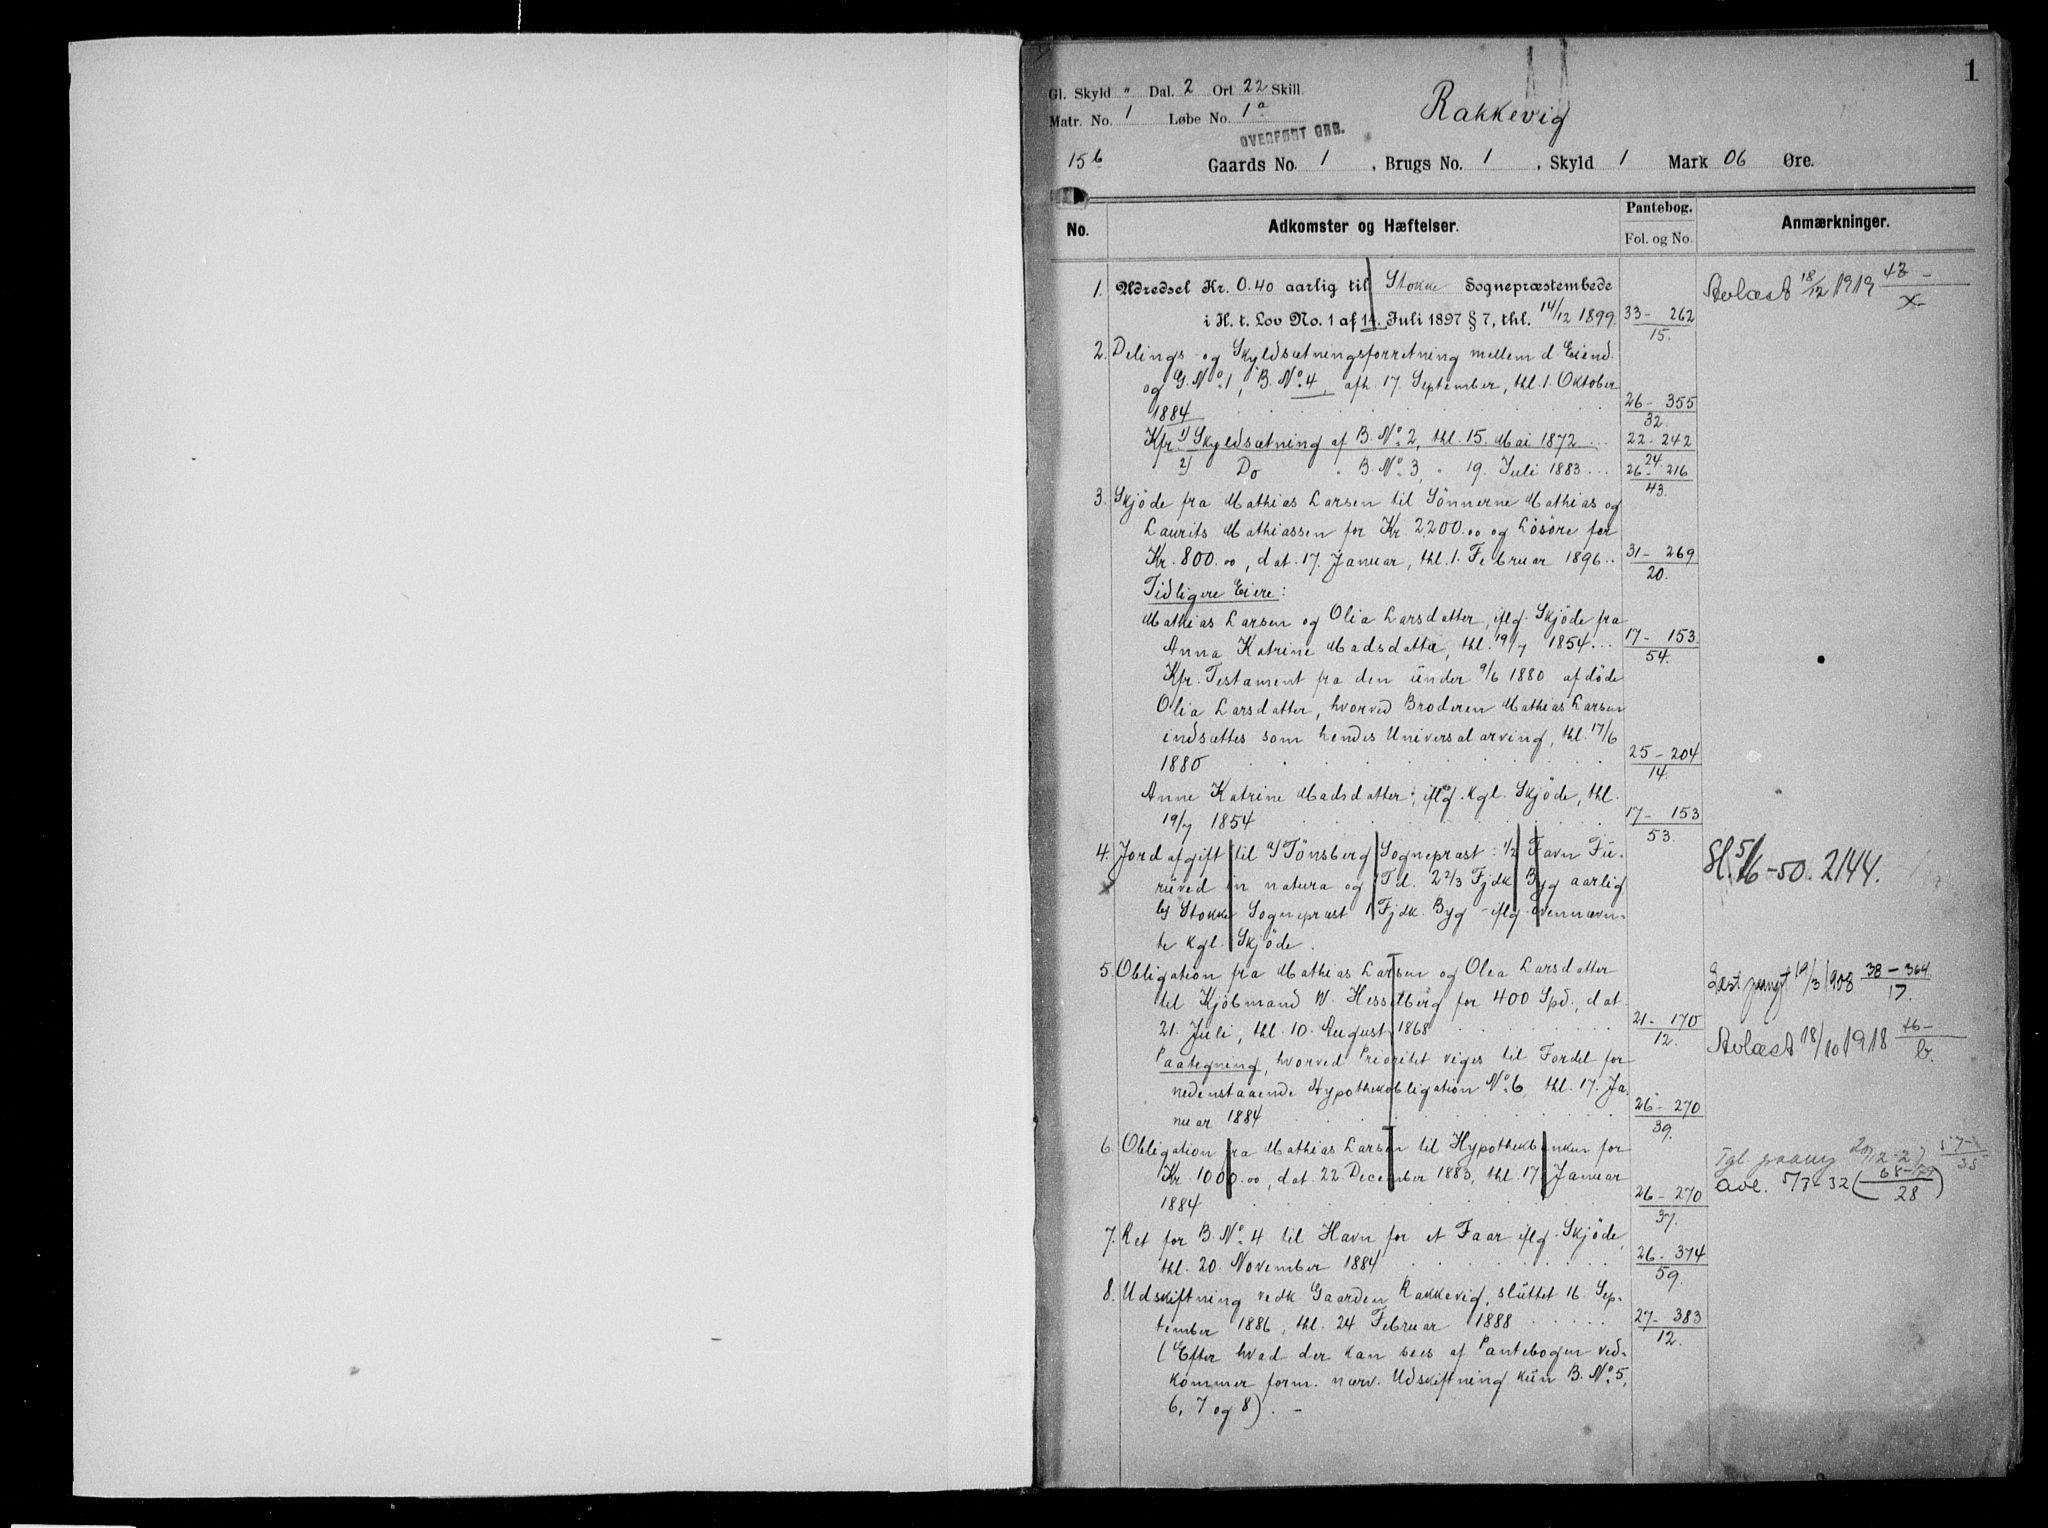 1
Gl. Skyld " Dal. 2 Ort 22 Skill
Matr. No. 1 Løbe No. 1a
Rakkevig
OVERFØRT GRB.
15b Gaards No. 1, Brugs No. 1, Skyld 1 Mark 06 Øre.
No. Adkomster og Hæftelser. Pantebog. Fol. og No. Anmærkninger.
1. Udredsel Kr. 0.40 aarlig til Stokke Sognepræstembede
i H. t. Lov No. 1 af 14. Juli 1897 § 7, thl. 14/12 1899. 33 - 262/15.
Avlæst 18/12 1919 43 -/x
2. Delings- og Skyldsætningsforretning mellem d. Eiend.
og G. No. 1, B. No. 4, afh. 17. September, thl. 1. Oktober
1884 . . . 26 - 355/32.
Kfr. 1) Skyldsætning af B. No. 2, thl. 15. Mai 1872 . . . 22 - 242/24.
2) Do " B. No. 3, " 19. Juli 1883 . . . 26 - 216/43.
3. Skjöde fra Mathias Larsen til Sönnerne Mathias og
Laurits Mathiassen for Kr. 2,200.00 og Lösöre for
Kr. 800.00, dat. 17. Januar, thl. 1. Februar 1896 . . 31 - 269/20.
Tidligere Eiere:
Mathias Larsen og Olia Larsdatter, iflg. Skjöde fra
Anna Katrine Madsdatter, thl. 19/7 1854 . . . 17 - 153/54.
Kfr. Testament fra den under 9/6 1880 afdöde
Olia Larsdatter, hvorved Broderen Mathias Larsen
indsættes som hendes Universalarving, thl. 17/6
1880 . . . 25 - 204/14.
Anne Katrine Madsdatter, iflg. kgl. Skjöde, thl.
19/7 1854 . . . 17 - 153/53.
4. Jordafgift til a) Tönsberg Sognepræst: 1/2 Favn Fu-
ruved in natura og 1 Td. 2 2/3 Fjdk Byg aarlig
b) Stokke Sognepræst 1 Fjdk. Byg - iflg. ovennævn-
te kgl. Skjöde.
Sl. 5/6-50. 2144.
5. Obligation fra Mathias Larsen og Olea Larsdatter
til Kjöbmand W. Hesselberg for 400 Spd., dat.
21. Juli, thl. 10. August 1868 . . . 21 - 170/12.
Paategning, hvorved Prioritet viges til Fordel for
nedenstaaende Hypothekobligation No. 6, thl. 17. Ja-
nuar 1884 . . . 26 - 270/39.
19/3 1908 38 - 364/17.
Avlæst 18/10 1918 46 -/b.
6. Obligation fra Mathias Larsen til Hypothekbanken for
Kr. 1000.00, dat. 22. December 1883, thl. 17. Januar
1884 . . . 26 - 270/37.
Ave. 5/3-32 (/28)
7. Ret for B. No. 4 til Havn for et Faar iflg. Skjöde,
thl. 20. November 1884 . . . 26 - 374/59.
8. Udskiftning vedk Gaarden Rakkevig, sluttet 16. Sep-
tember 1886, thl. 24 Februar 1888 . . . 27 - 383/12.
(Efter hvad der kan sees af Pantebogen ved-
kommer form. nærv. Udskiftning kun B. No. 5,
6, 7 og 8). -